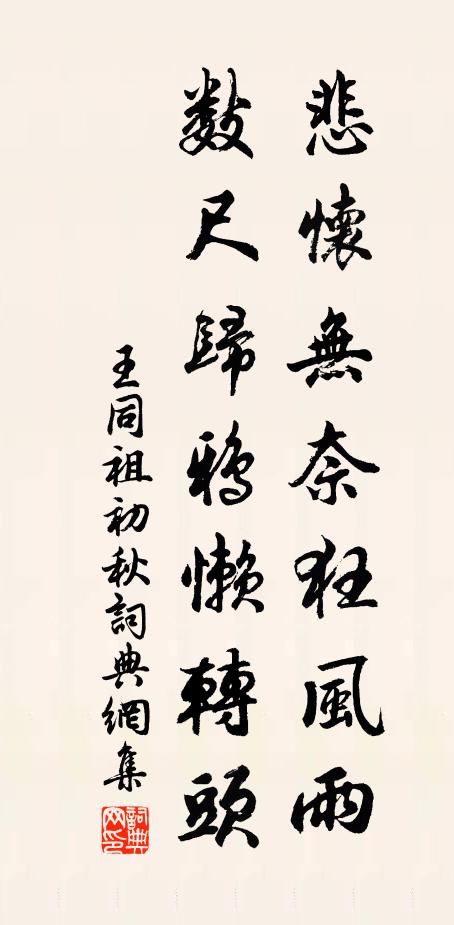 悲懷無奈狂風雨
數尺歸鴉懶轉頭
王同祖初秋詞典網集
詞典网印